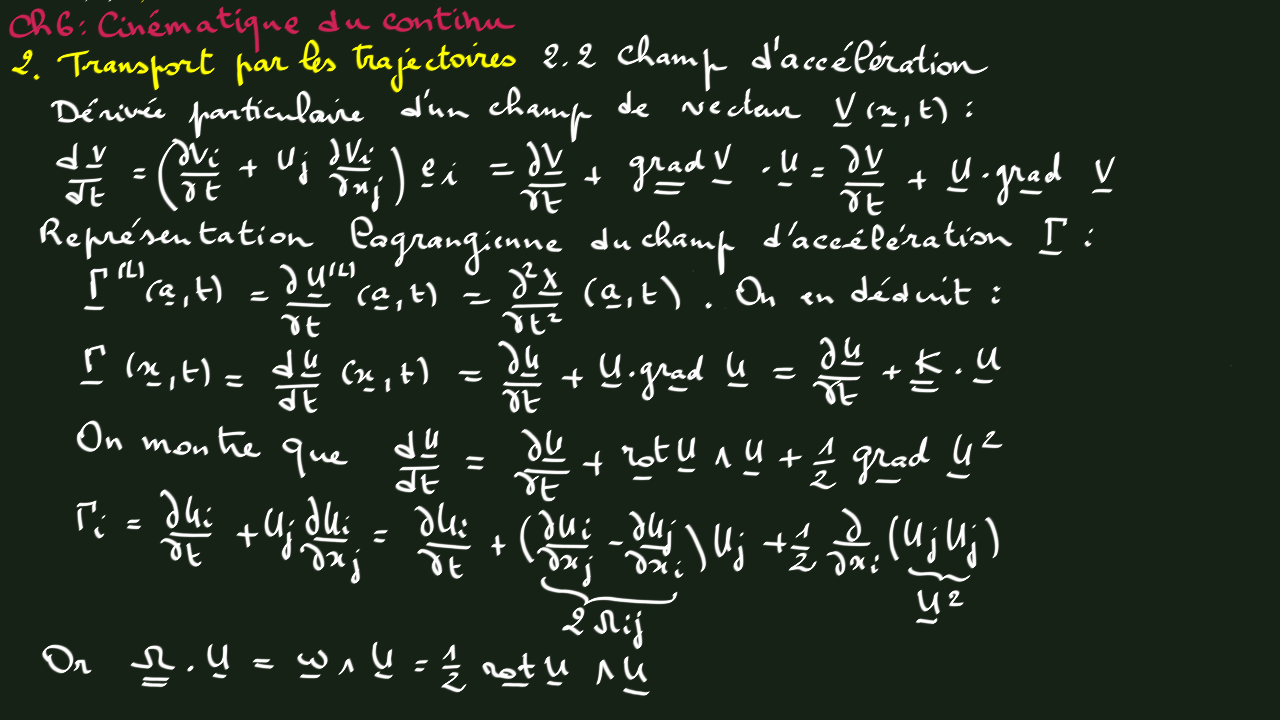 Ch6: Cinématique du continu
2. Transport par les trajectoires 2.2 Champ d'accélération
Dérivée particulaire d'un champ de vecteur V(x,t) :
dV/dt = (∂Vi/∂t + Uj ∂Vi/∂xj) ei = ∂V/∂t + grad V · U = ∂V/∂t + U · grad V
Représentation Lagrangienne du champ d'accélération Γ :
Γ^(L) (a,t) = ∂U^(L)/∂t (a,t) = ∂²X/∂t² (a,t). On en déduit :
Γ (x,t) = dU/dt (x,t) = ∂U/∂t + U·grad U = ∂U/∂t + K · U
On montre que dU/dt = ∂U/∂t + rot U ∧ U + 1/2 grad U²
Γi = ∂Ui/∂t + Uj ∂Ui/∂xj = ∂Ui/∂t + (∂Ui/∂xj - ∂Uj/∂xi) Uj + 1/2 ∂/∂xi (Uj Uj)
2 Ωij U²
Or Ω · U = ω ∧ U = 1/2 rot U ∧ U